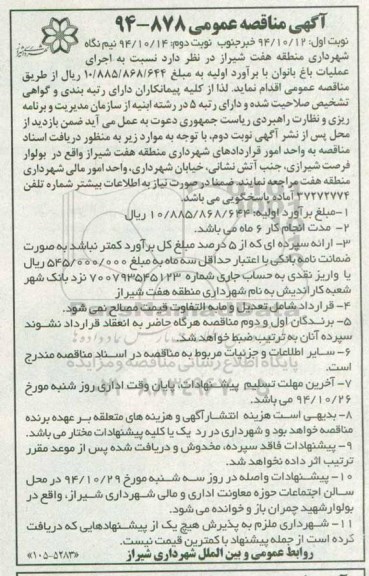 آگهی مناقصه عمومی ۸۷۸-۹۴
نوبت اول: ۹۴/۱۰/۱۲ خبرجنوب نوبت دوم: ۹۴/۱۰/۱۴ نیم نگاه
شهرداری منطقه هفت شیراز در نظر دارد نسبت به اجرای
عملیات باغ بانوان با برآورد اولیه به مبلغ ۱۰/۸۸۵/۸۶۸/۶۴۴ ریال از طریق
مناقصه عمومی اقدام نماید. لذا از کلیه پیمانکاران دارای رتبه بندی و گواهی
تشخیص صلاحیت شده و دارای رتبه ۵ در رشته ابنیه از سازمان مدیریت و برنامه
ریزی و نظارت راهبردی ریاست جمهوری دعوت به عمل می آید ضمن بازدید از
محل پس از نشر آگهی نوبت دوم، با توجه به موارد زیر به منظور دریافت اسناد
مناقصه به واحد امور قراردادهای شهرداری منطقه هفت شیراز واقع در بولوار
فرصت شیرازی، جنب آتش نشانی، خیابان شهرداری، واحد امور مالی شهرداری
منطقه هفت مراجعه نمایند. ضمنا در صورت نیاز به اطلاعات بیشتر شماره تلفن
۳۷۲۷۲۷۷۴ آماده پاسخگویی می باشد.
۱-مبلغ برآورد اولیه: ۱۰/۸۸۵/۸۶۸/۶۴۴ ریال
۲- مدت انجام کار ۶ ماه می باشد.
۳- ارائه سپرده ای که از ۵ درصد مبلغ کل برآورد کمتر نباشد به صورت
ضمانت نامه بانکی با اعتبار حداقل سه ماه به مبلغ ۵۴۵/۰۰۰/۰۰۰ ریال
یا واریز نقدی به حساب جاری شماره ۷۰۰۷۹۳۵۴۵۱۲۳ نزد بانک شهر
شعبه کاراندیش به نام شهرداری منطقه هفت شیراز
۴- قرارداد شامل تعدیل و مابه التفاوت قیمت مصالح نمی شود.
۵- برندگان اول و دوم مناقصه هرگاه حاضر به انعقاد قرارداد نشوند
سپرده آنان به ترتیب ضبط خواهد شد.
۶- سایر اطلاعات و جزئیات مربوط به مناقصه در اسناد مناقصه مندرج
است.
۷- آخرین مهلت تسلیم پیشنهادات تا پایان وقت اداری روز شنبه مورخ
۹۴/۱۰/۲۶ می باشد.
۸- بدیهی است هزینه انتشار آگهی و هزینه های متعلقه بر عهده برنده
مناقصه خواهد بود و شهرداری در رد یک یا کلیه پیشنهادات مختار می باشد.
۹- پیشنهادات فاقد سپرده، مخدوش و دریافت شده پس از موعد مقرر
ترتیب اثر داده نخواهد شد.
۱۰- پیشنهادات واصله در روز سه شنبه مورخ ۹۴/۱۰/۲۹ در محل
سالن اجتماعات حوزه معاونت اداری و مالی شهرداری شیراز، واقع در
بولوارشهید چمران باز و خوانده می شود.
۱۱- شهرداری ملزم به پذیرش هیچ یک از پیشنهادهایی که دریافت
کرده است از جمله پیشنهاد با کمترین قیمت نیست.
روابط عمومی و بین الملل شهرداری شیراز «۱۰۵-۵۲۸۳»